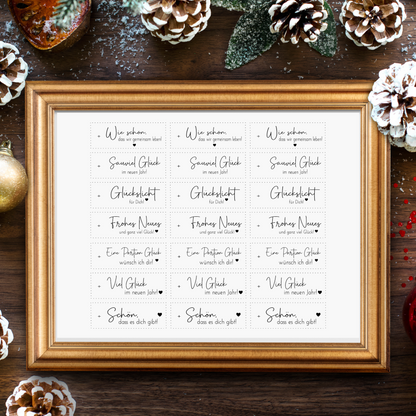 Wie schön, Wie schön, Wie schön,
das wir gemeinsam leben! das wir gemeinsam leben! das wir gemeinsam leben!
Sauviel Glück Sauviel Glück Sauviel Glück
im neuen Jahr! im neuen Jahr! im neuen Jahr!
Glückslicht Glückslicht Glückslicht
für Dich! für Dich! für Dich!
Frohes Neues Frohes Neues Frohes Neues
und ganz viel Glück! und ganz viel Glück! und ganz viel Glück!
Eine Portion Glück Eine Portion Glück Eine Portion Glück
wünsch ich dir! wünsch ich dir! wünsch ich dir!
Viel Glück Viel Glück Viel Glück
im neuen Jahr! im neuen Jahr! im neuen Jahr!
Schön, Schön, Schön,
dass es dich gibt! dass es dich gibt! dass es dich gibt!